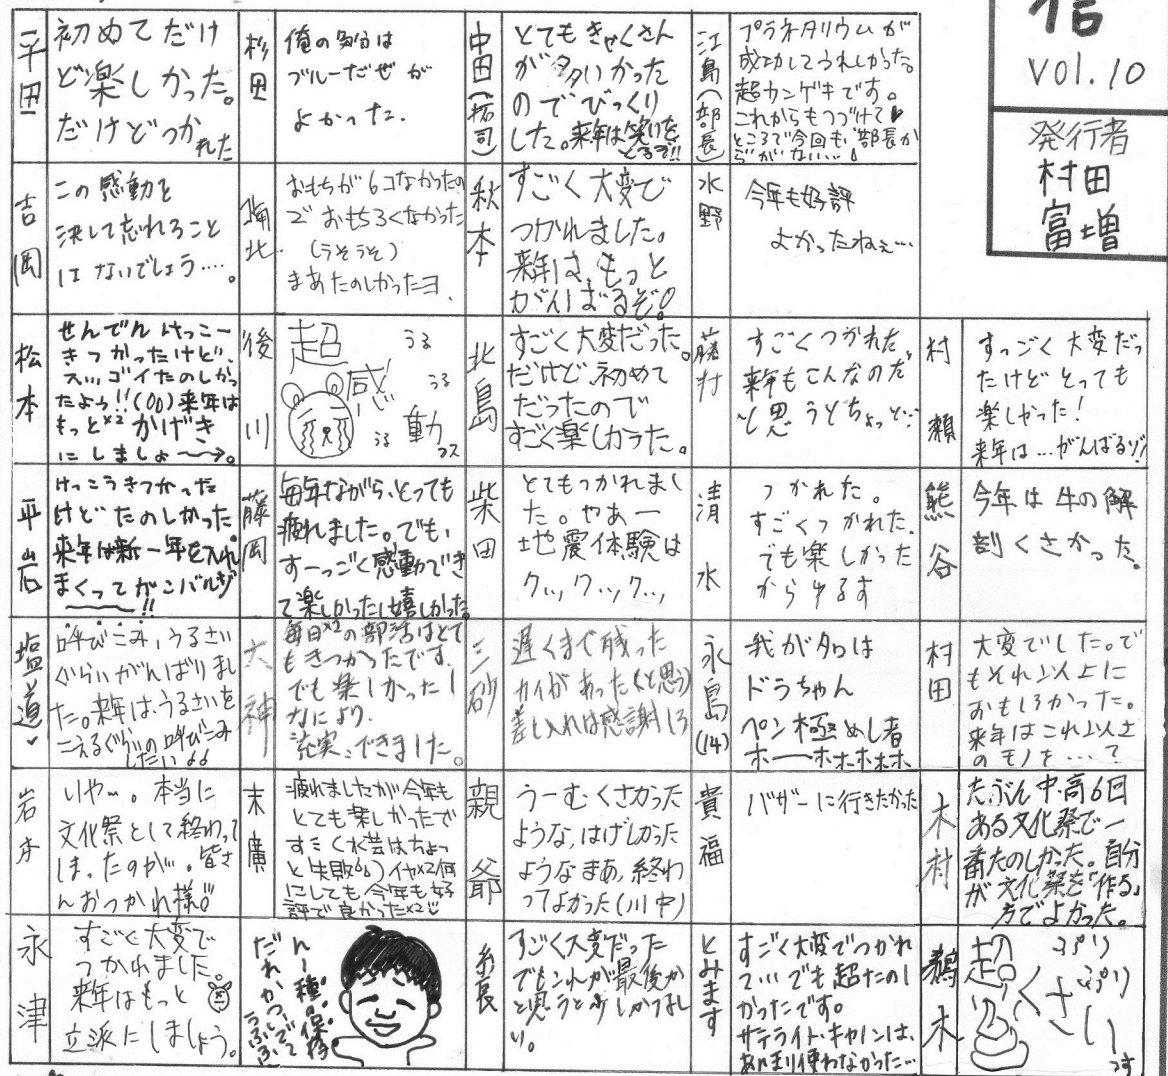 信
vol.10
発行者
村田
富増
平田
初めてだけ
ど楽しかった。
だけどつか
れた
杉田
俺の多分は
ブルーだぜが
よかった.
中田(拓司)
とてもきゃくさん
が多いかった
のでびっくり
した。来年は笑いを
とるぞ!!
江島(部長)
プラネタリウムが
成功してうれしかった。
超カンゲキです。
これからもつづけて♥
ところで今回も"部長か
ら"がない…。
吉岡
この感動を
決して忘れること
はないでしょう…。
海北
おもちが6コなかったの
でおもちろくなかった
(うそうそ)
まあたのしかったヨ.
秋本
すごく大変で
つかれました。
来年は、もっと
がんばるぞ!
水野
今年も好評
よかったねぇ…
松本
せんでんけっこー
きつかったけど、
スッゴイたのしかっ
たよぅ!!(00)来年は
もっと×2かげき
にしましょ〜〜。
後川
超
感
動
うる
うる
うる
っス
北島
すごく大変だった。
だけど、初めて
だったので
すごく楽しかった。
藤村
すごくつかれた。
来年もこんなのだ
と思うとちょっと…
村瀬
すっごく大変だっ
たけどとっても
楽しかった!
来年は…がんばるゾ!!
平岩
けっこうきつかった
けどたのしかった。
来年は新一年を入れ
まくってガンバルゾ
〜〜!!
藤岡
毎年ながら、とっても
疲れました。でも、
すーっごく感動でき
て楽しかったし嬉しかった。
柴田
とてもつかれまし
た。やあー
地震体験は
クッ,クッ,ク,,
清水
つかれた。
すごくつかれた.
でも楽しかった
からゆるす
熊谷
今年は牛の解
剖くさかった。
塩道
呼びこみ,うるさい
ぐらいがんばりまし
た。来年は、うるさいを
こえるぐらいの呼びこみ
したい
大神
毎日×2の部活はとて
もきつかったです。
でも楽しかったし
なにより、
充実、できました。
三砂
遅くまで残った
カイがあった(と思う)
差し入れは感謝しろ
永島(14)
我が名は
ドラちゃん
ペン極めし者
ホーーホホホホホ
村田
大変でした。で
もそれ以上に
おもしろかった。
来年はこれ以上
のモノを…?
岩本
いや〜。本当に
文化祭として終わって
しまったのが〜。皆さ
んおつかれ様。
末廣
疲れましたが今年も
とても楽しかったで
すミ(水芸はちょっ
と失敗%)イヤ×2何
にしても、今年も好
評で良かった×2
親爺
うーむくさかった
ような,はげしかった
ようなまあ,終わ
ってよかった(川中)
貴福
バザーに行きたかった
木村
たぶん中・高6回
ある文化祭で一
番たのしかった。自分
が文化祭を「作る」
方でよかった。
永津
すごく大変で
つかれました。
来年はもっと
立派にしましょう。
んー種の保存
だれかつっこんで
うふふふ
糸長
すごく大変だった
でもこれが最後か
と思うと少しかなし
い。
とみます
すごく大変でつかれ
ていでも超たのし
かったです。
サテライト・キャノンは、
あんまり使わなかった…
鵜木
超
くさい
ぷり
ぷり
っす